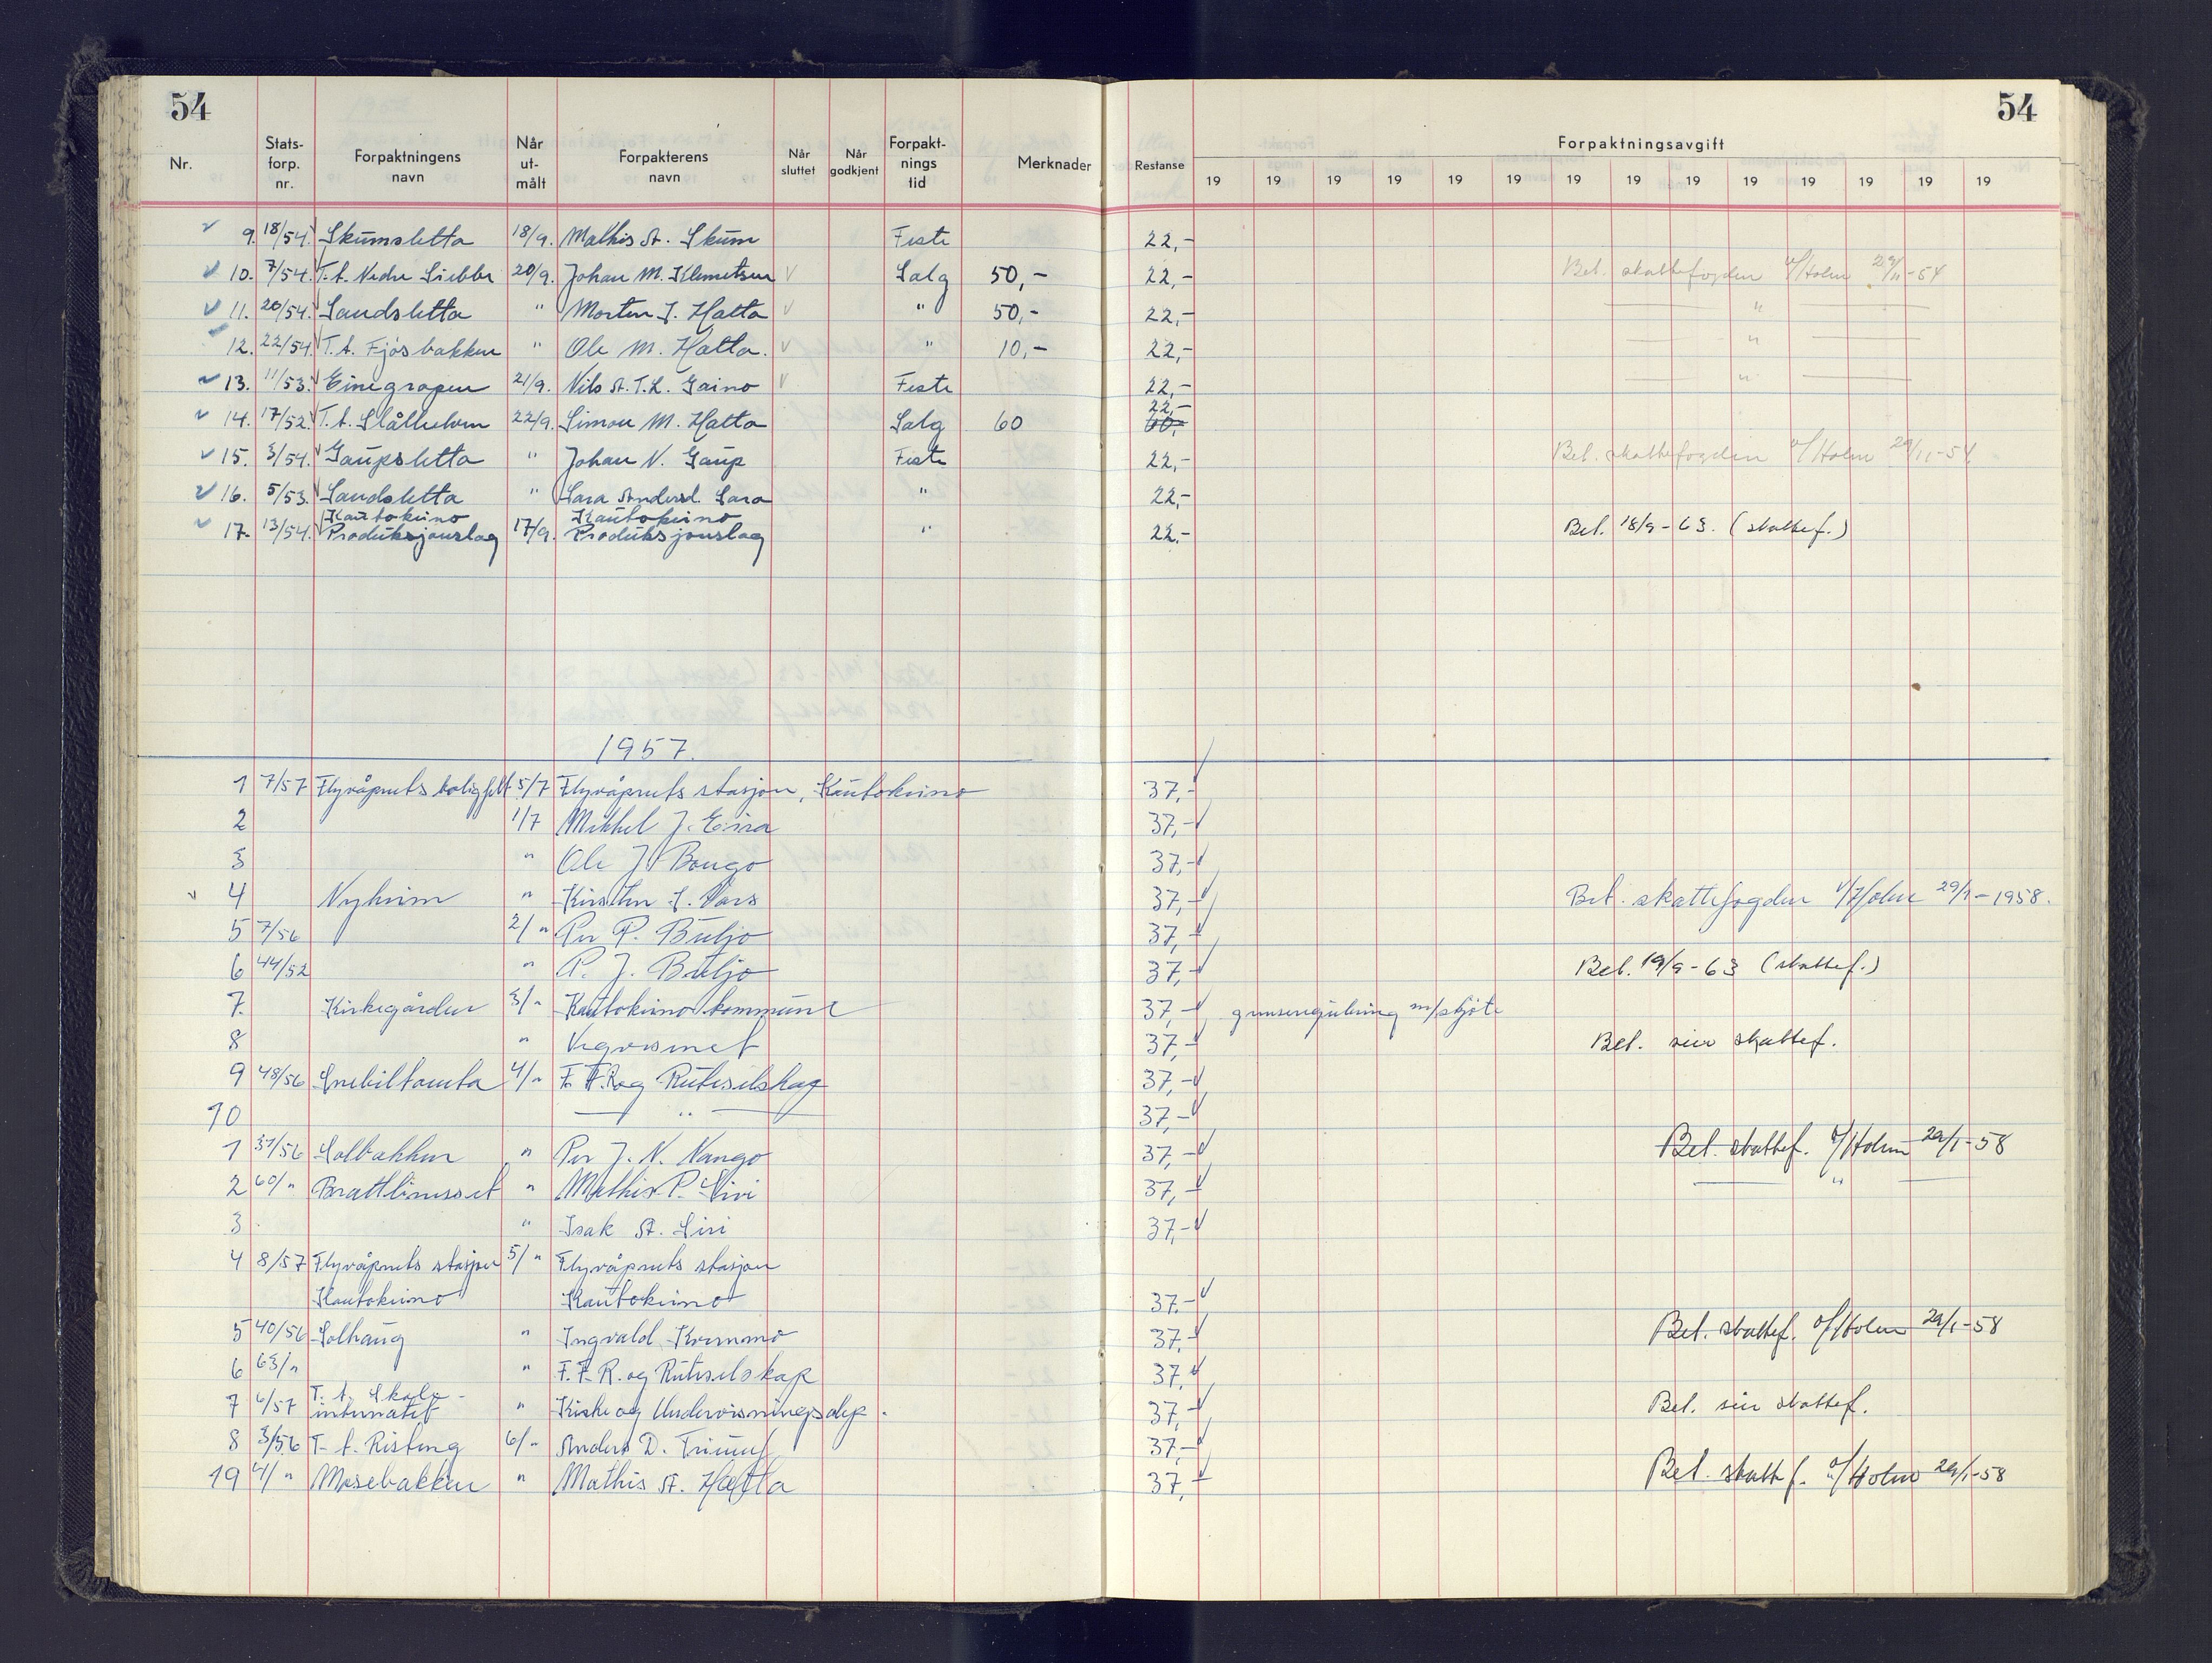 54
54
Nr. Stats-forp. nr. Forpaktningens navn Når ut-målt Forpakterens navn Når sluttet Når godkjent Forpakt-nings tid Merknader Restanse Forpaktningsavgift
19 19 19 19 19 19 19 19 19 19 19 19 19 19
9. 18/54. Skumsletta 18/9. Mathis A. Skum Feste 22,-
10. 7/54. T.A. Nedre Siebbe 20/9. Johan M. Klemetsen Salg 50,- 22,- Bet. skattefogden v/Holm 29/11-54
11. 20/54. Sandsletta " Morten J. Hætta " 50,- 22,- "
12. 22/54. T.A. Fjøsbakken " Ole M. Hætta. " 10,- 22,- "
13. 11/53. Einegropen 21/9. Nils A.T.L. Gaino Feste 22,- "
14. 17/52. T.A. 22/9. Simon M. Hætta Salg 60 22,- 60,-
15. 3/54. Gaupsletta " Johan N. Gaup Feste 22,- Bet. skattefogden v/Holm 29/11-54
16. 5/53. Sandsletta " Sara Andersd. Sara " 22,-
17. 13/54. Kautokeino Produksjonslag 17/9. Kautokeino Produksjonslag " 22,- Bet. 18/9-63. (skattef.)
1957.
1 7/57 Flyvåpnets boligfelt 5/7 Flyvåpnets stasjon, Kautokeino 37,-
2 1/7 Mikkel J. Eira 37,-
3 " Ole J. Bongo 37,-
4 Nyheim " Kirsten J. Vars 37,- Bet. skattefogden v/Holm 29/1-1958.
5 7/56 2/" Per P. Buljo 37,-
6 44/52 " P. J. Buljo 37,- Bet. 19/9-63 (skattef.)
7. Kirkegården 3/" Kautokeino kommune 37,- grenseregulering m/skjøte
8 " Vegvesenet 37,- Bet. sier skattef.
9 48/56 Snebiltomta 4/" F.F.R. og Ruteselskap 37,-
10 " 37,-
1 37/56 Solbakken " Per J. N. Nango 37,- Bet. skattef. v/Holm 29/1-58
2 60/" Brattlineset " Mathis P. Siri 37,- "
3. " Isak A. Siri 37,-
4 8/57 Flyvåpnets stasjon 5/" Flyvåpnets stasjon
Kautokeino Kautokeino 37,-
5 40/56 Solhaug " Ingvald Kvernmo 37,- Bet. skattef. v/Holm 29/1-58
6 63/" " F.F.R. og Ruteselskap 37,-
7 6/57 T.A. Skole-internatet " Kirke og Undervisningsdep. 37,- Bet. sier skattef.
8 3/56 T.A. Risteng 6/" Anders D. Triumf 37,-
19 4/" Mosebakken " Mathis A. Hætta 37,- Bet. skattef. v/Holm 29/1-58